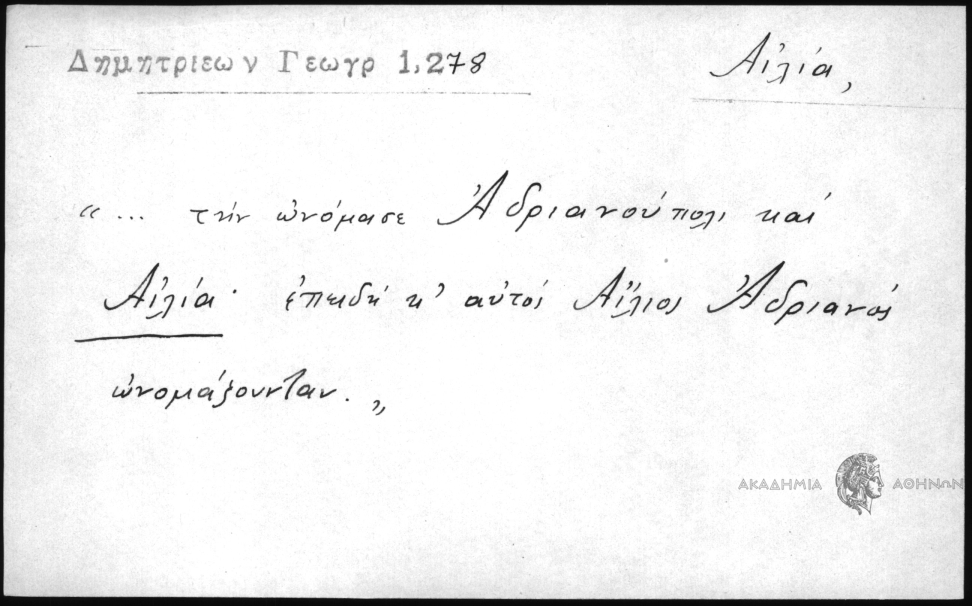 Δημητριεων Γεωγρ 1.278
Αἰλία,
“... τήν ὠνόμασε Ἀδριανούπολι καί
Αἰλία· ἐπειδή κ' αὐτοί Αἴλιος Ἀδριανός
ὠνομάζουνταν.„
ΑΚΑΔΗΜΙΑ ΑΘΗΝΩΝ